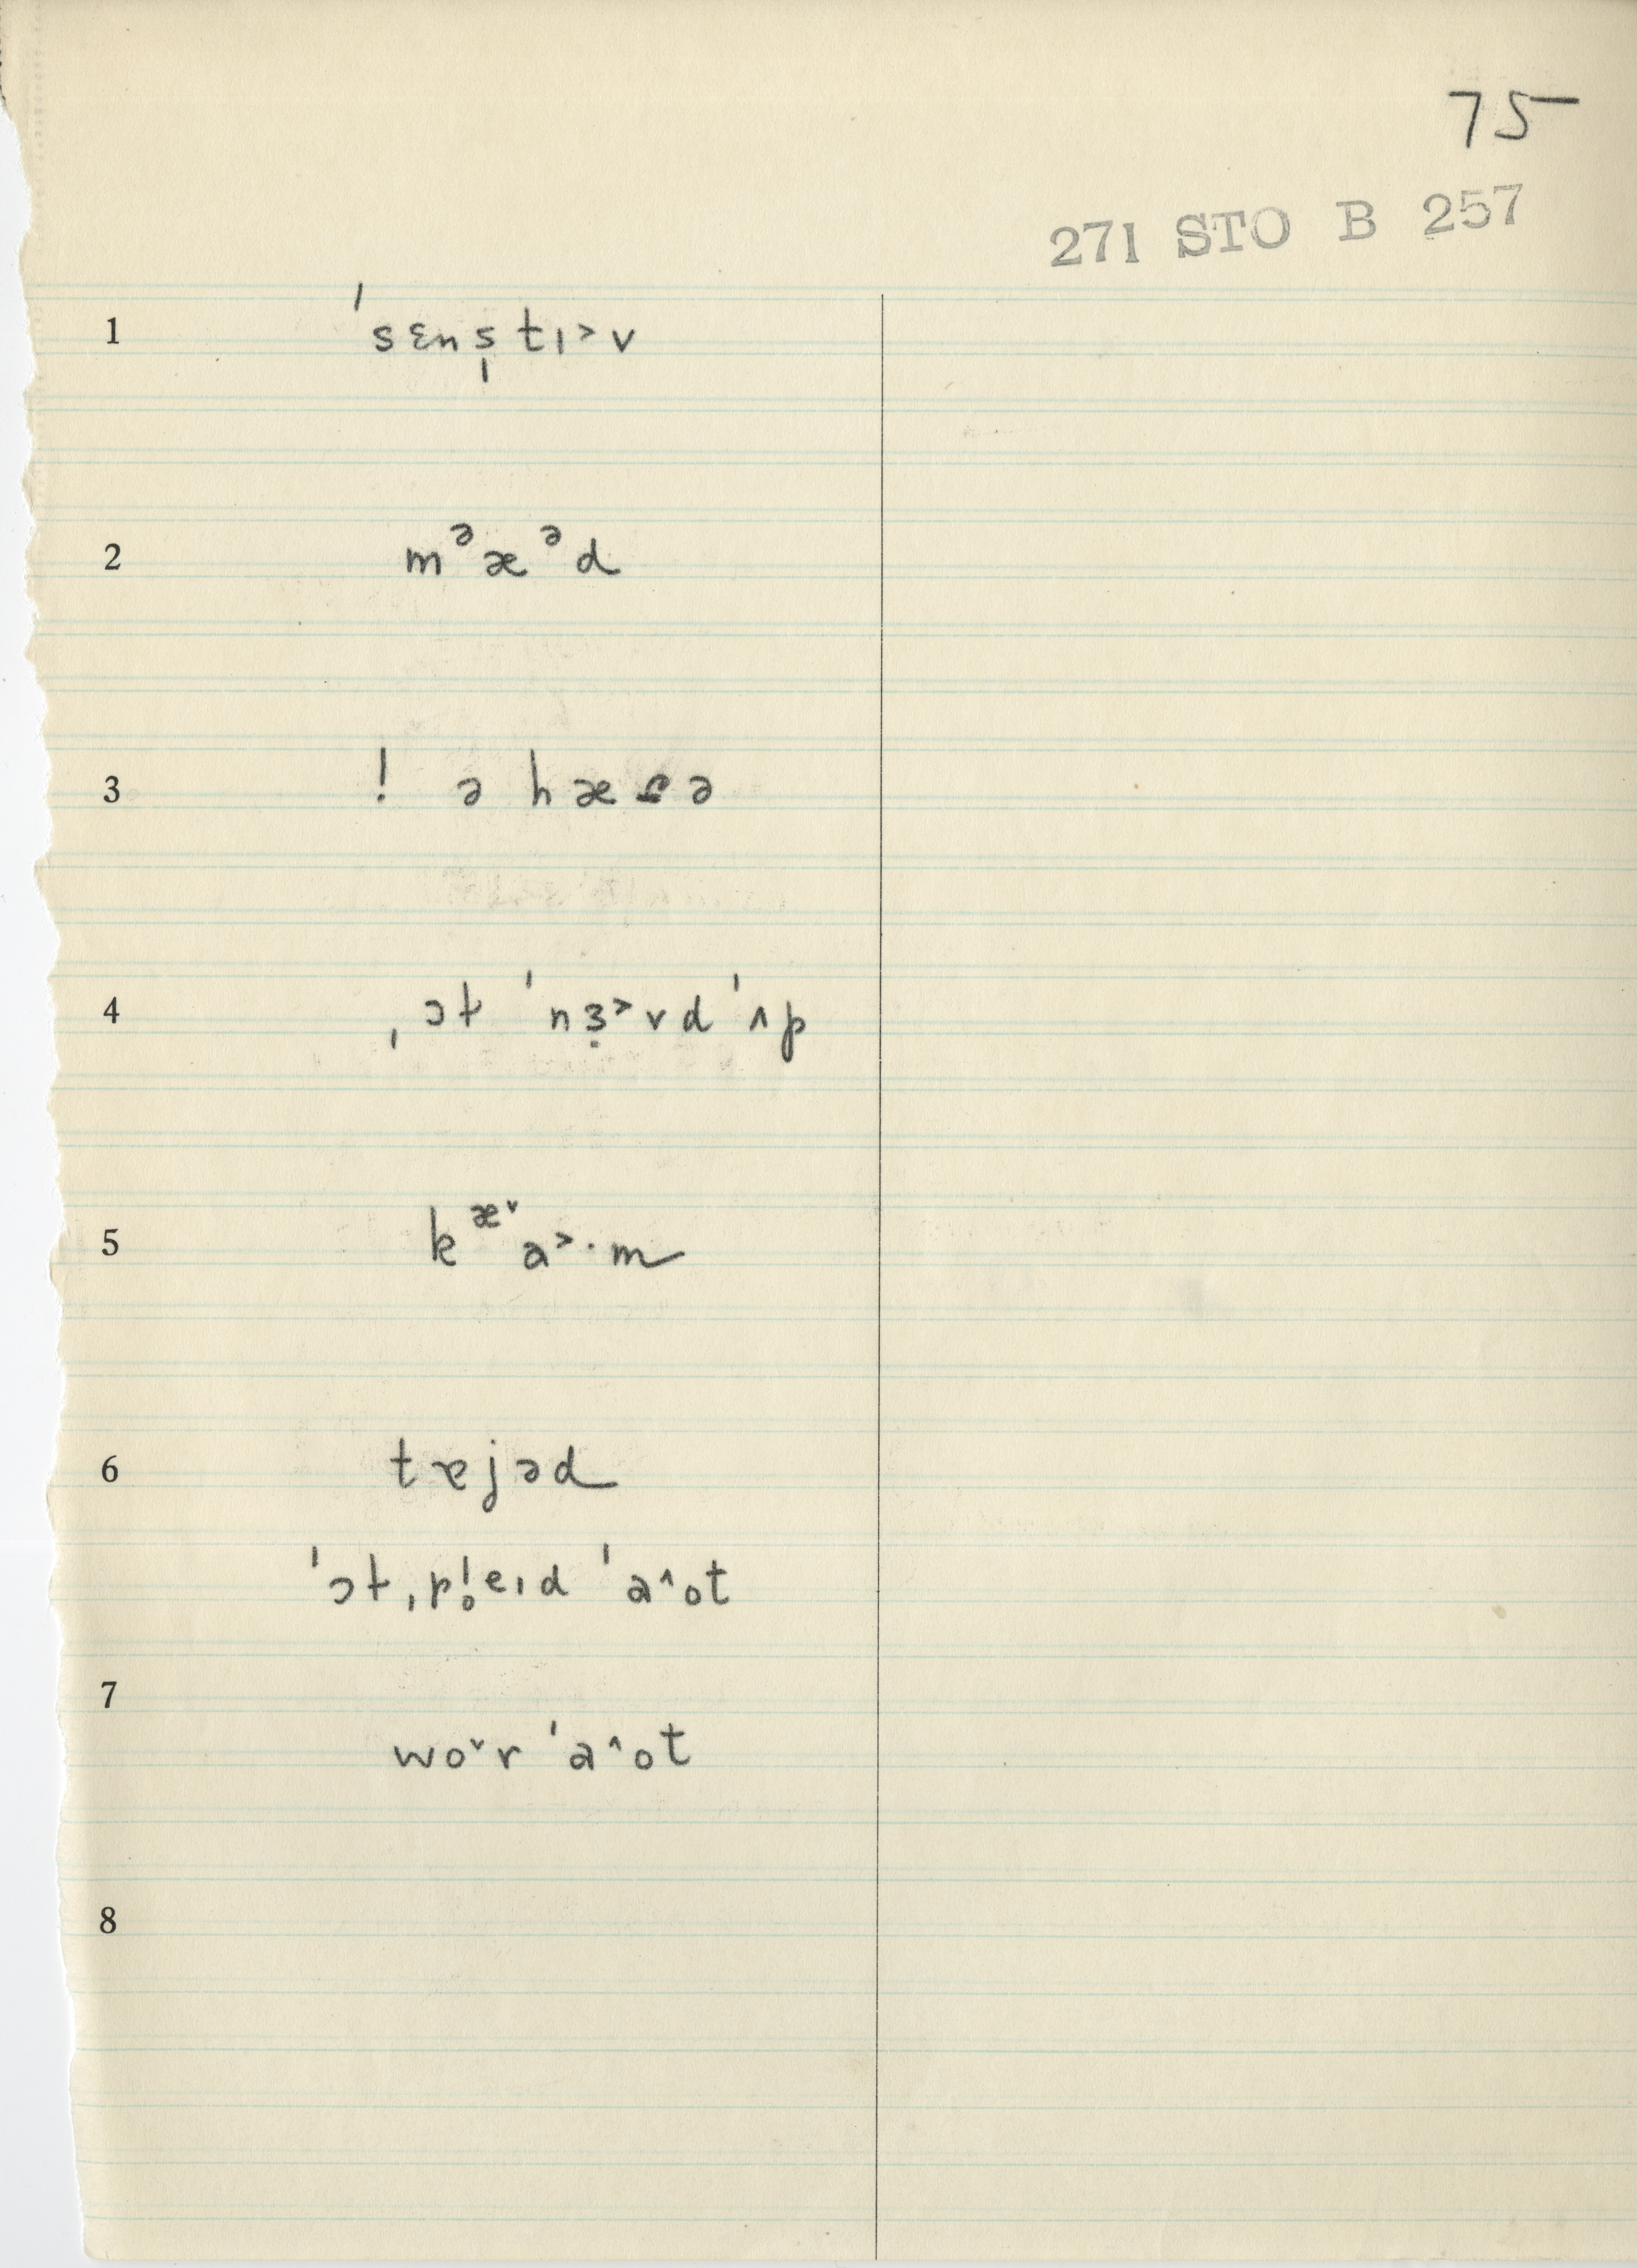 75
271 STO B 257
1 ˈsɛns̩tɪ˃v
2 mᵊæᵊd
3 ! ə h æ ə
4 ˌɔt ˈnɜ̣˃vd ˈʌp
5 kᵆ˅a˃·m
6 tɐjəd
ˈɔtˌpl̥eɪd ˈa^ot
7
wo˅r ˈa^ot
8